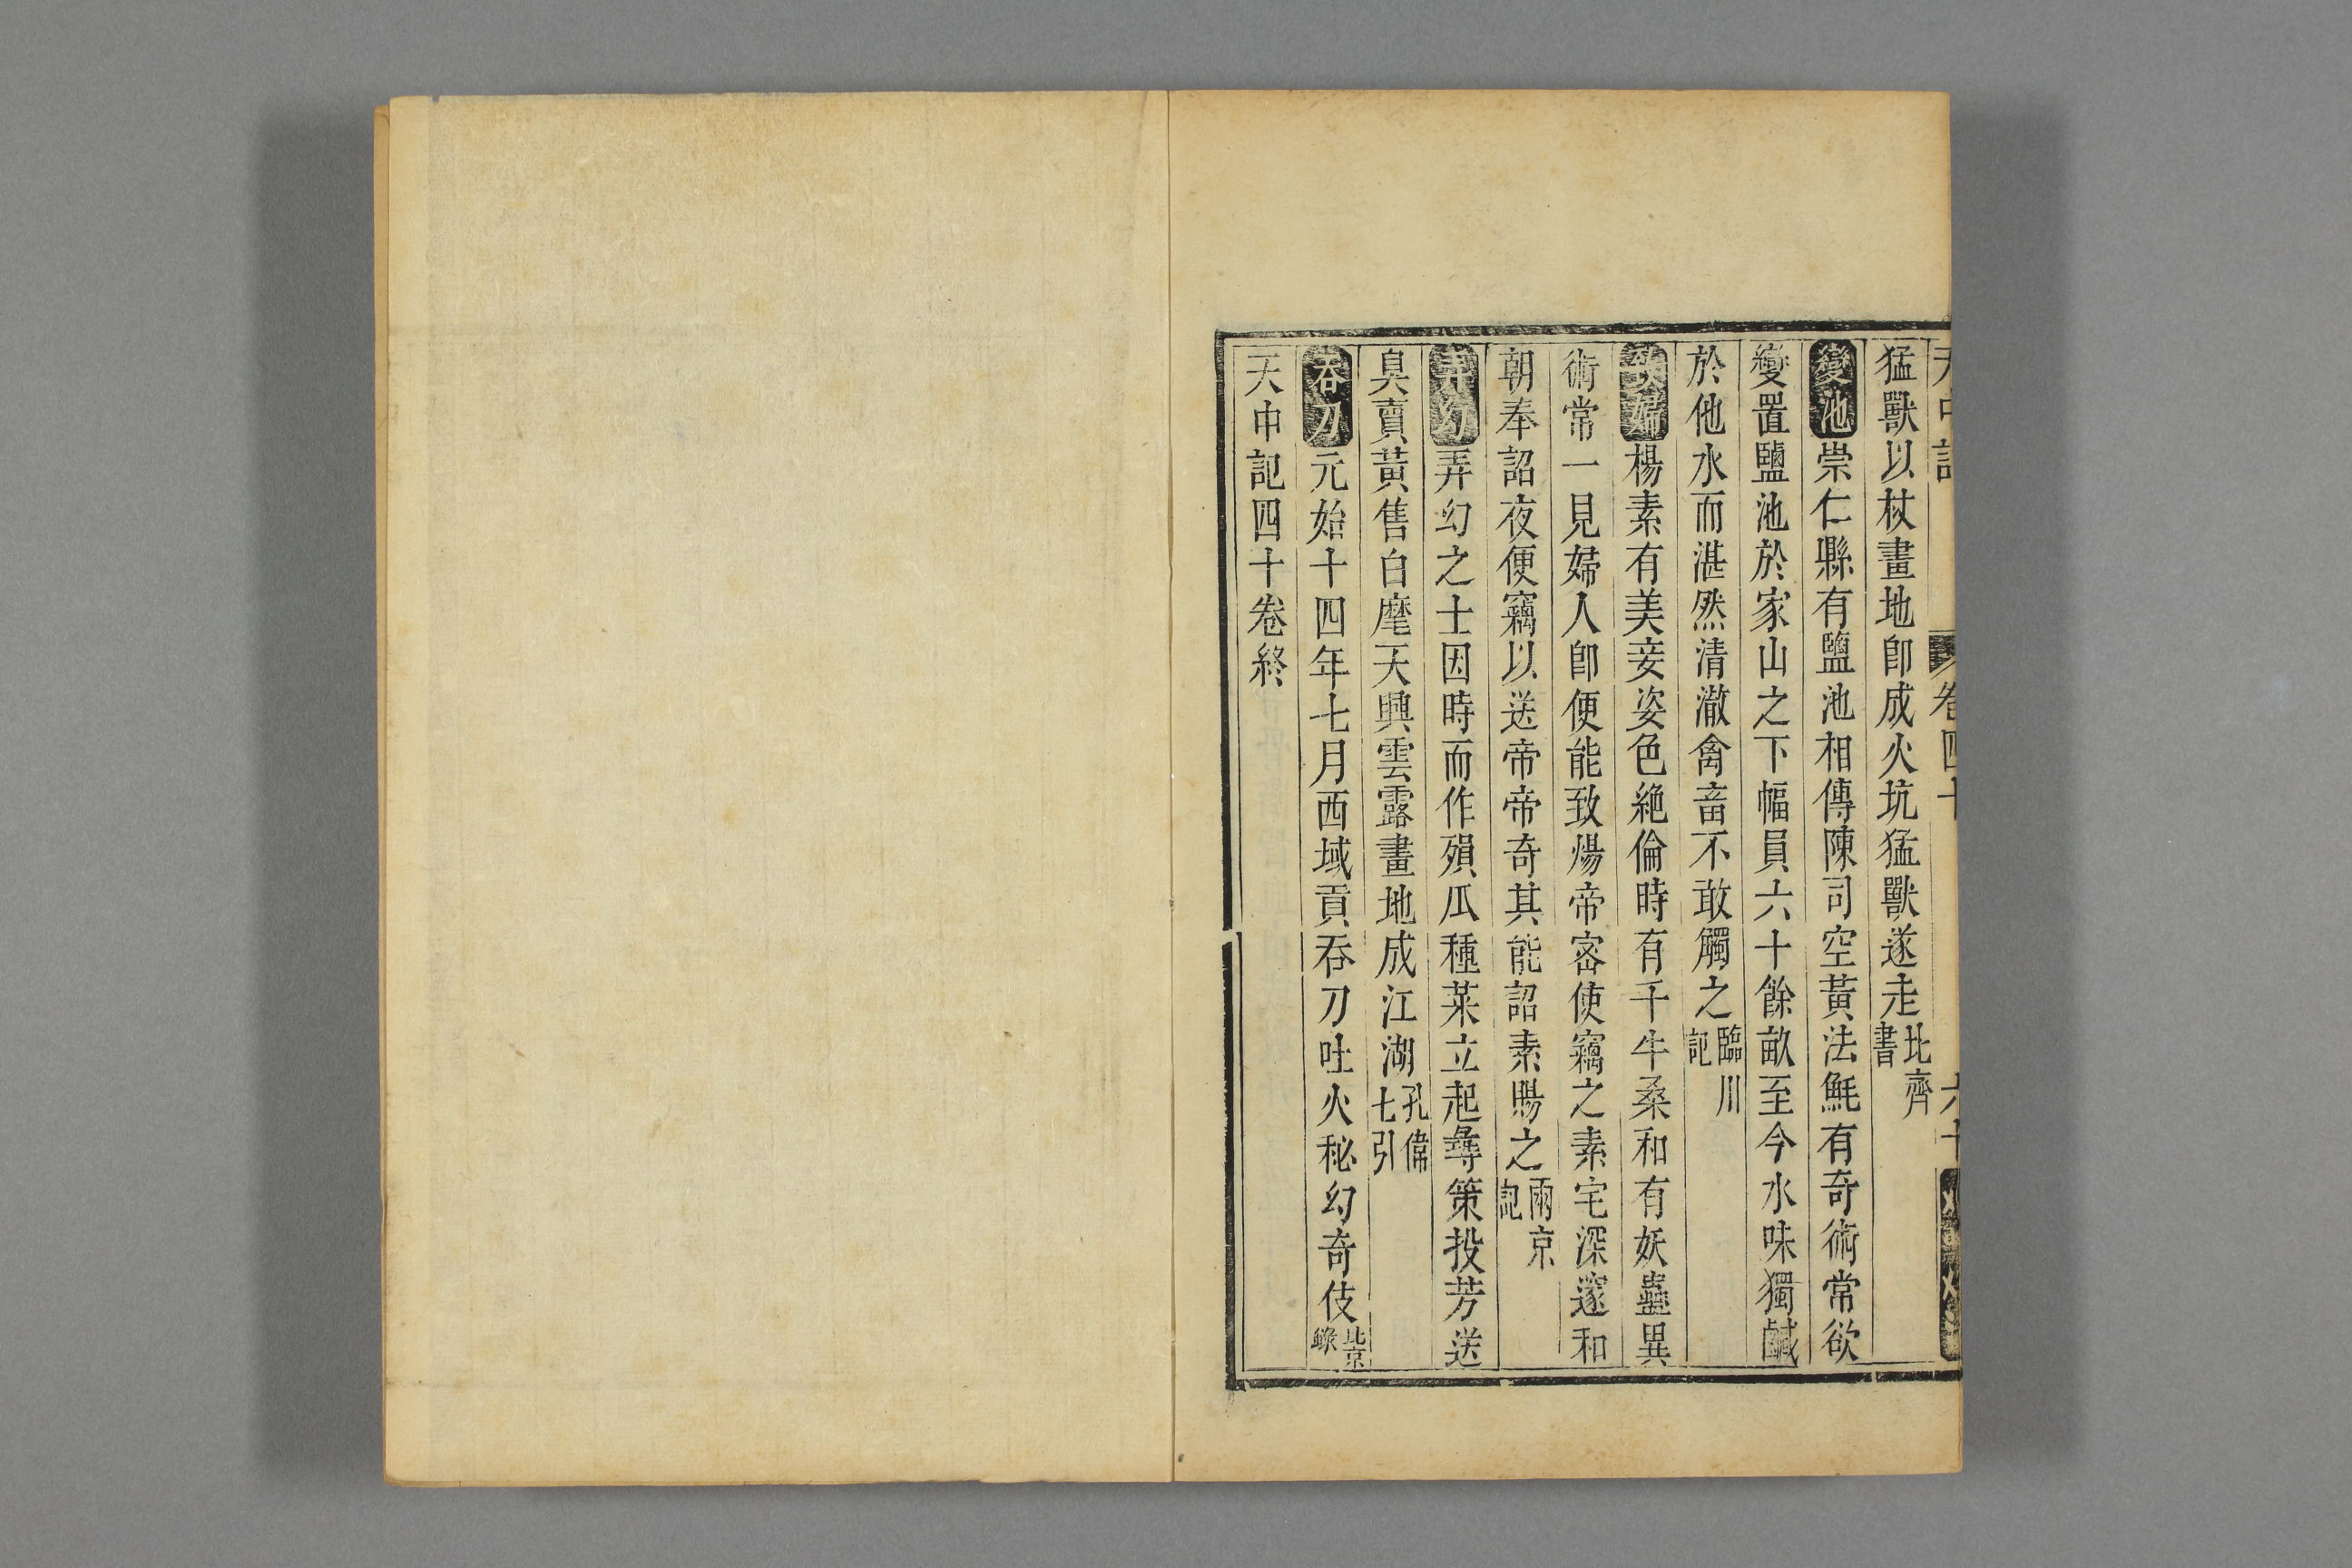 天中記 卷四十 六十
猛獸以杖畫地卽成火坑猛獸遂走北齊書
變池崇仁縣有鹽池相傳陳司空黃法𣰰有奇術常欲
變置鹽池於家山之下幅員六十餘畝至今水味獨鹹
於他水而湛然清澈禽畜不敢觸之臨川記
致婦楊素有美妾姿色絶倫時有千牛桑和有妖蠱異
術常一見婦人卽便能致煬帝密使竊之素宅深邃和
朝奉詔夜便竊以送帝帝奇其能詔素賜之兩京記
弄幻弄幻之士因時而作殞瓜種菜立起尋策投芳送
臭賣黃售白麾天興雲露畫地成江湖孔偉七引
吞刀元始十四年七月西域貢吞刀吐火秘幻奇伎北京錄
天中記四十卷終